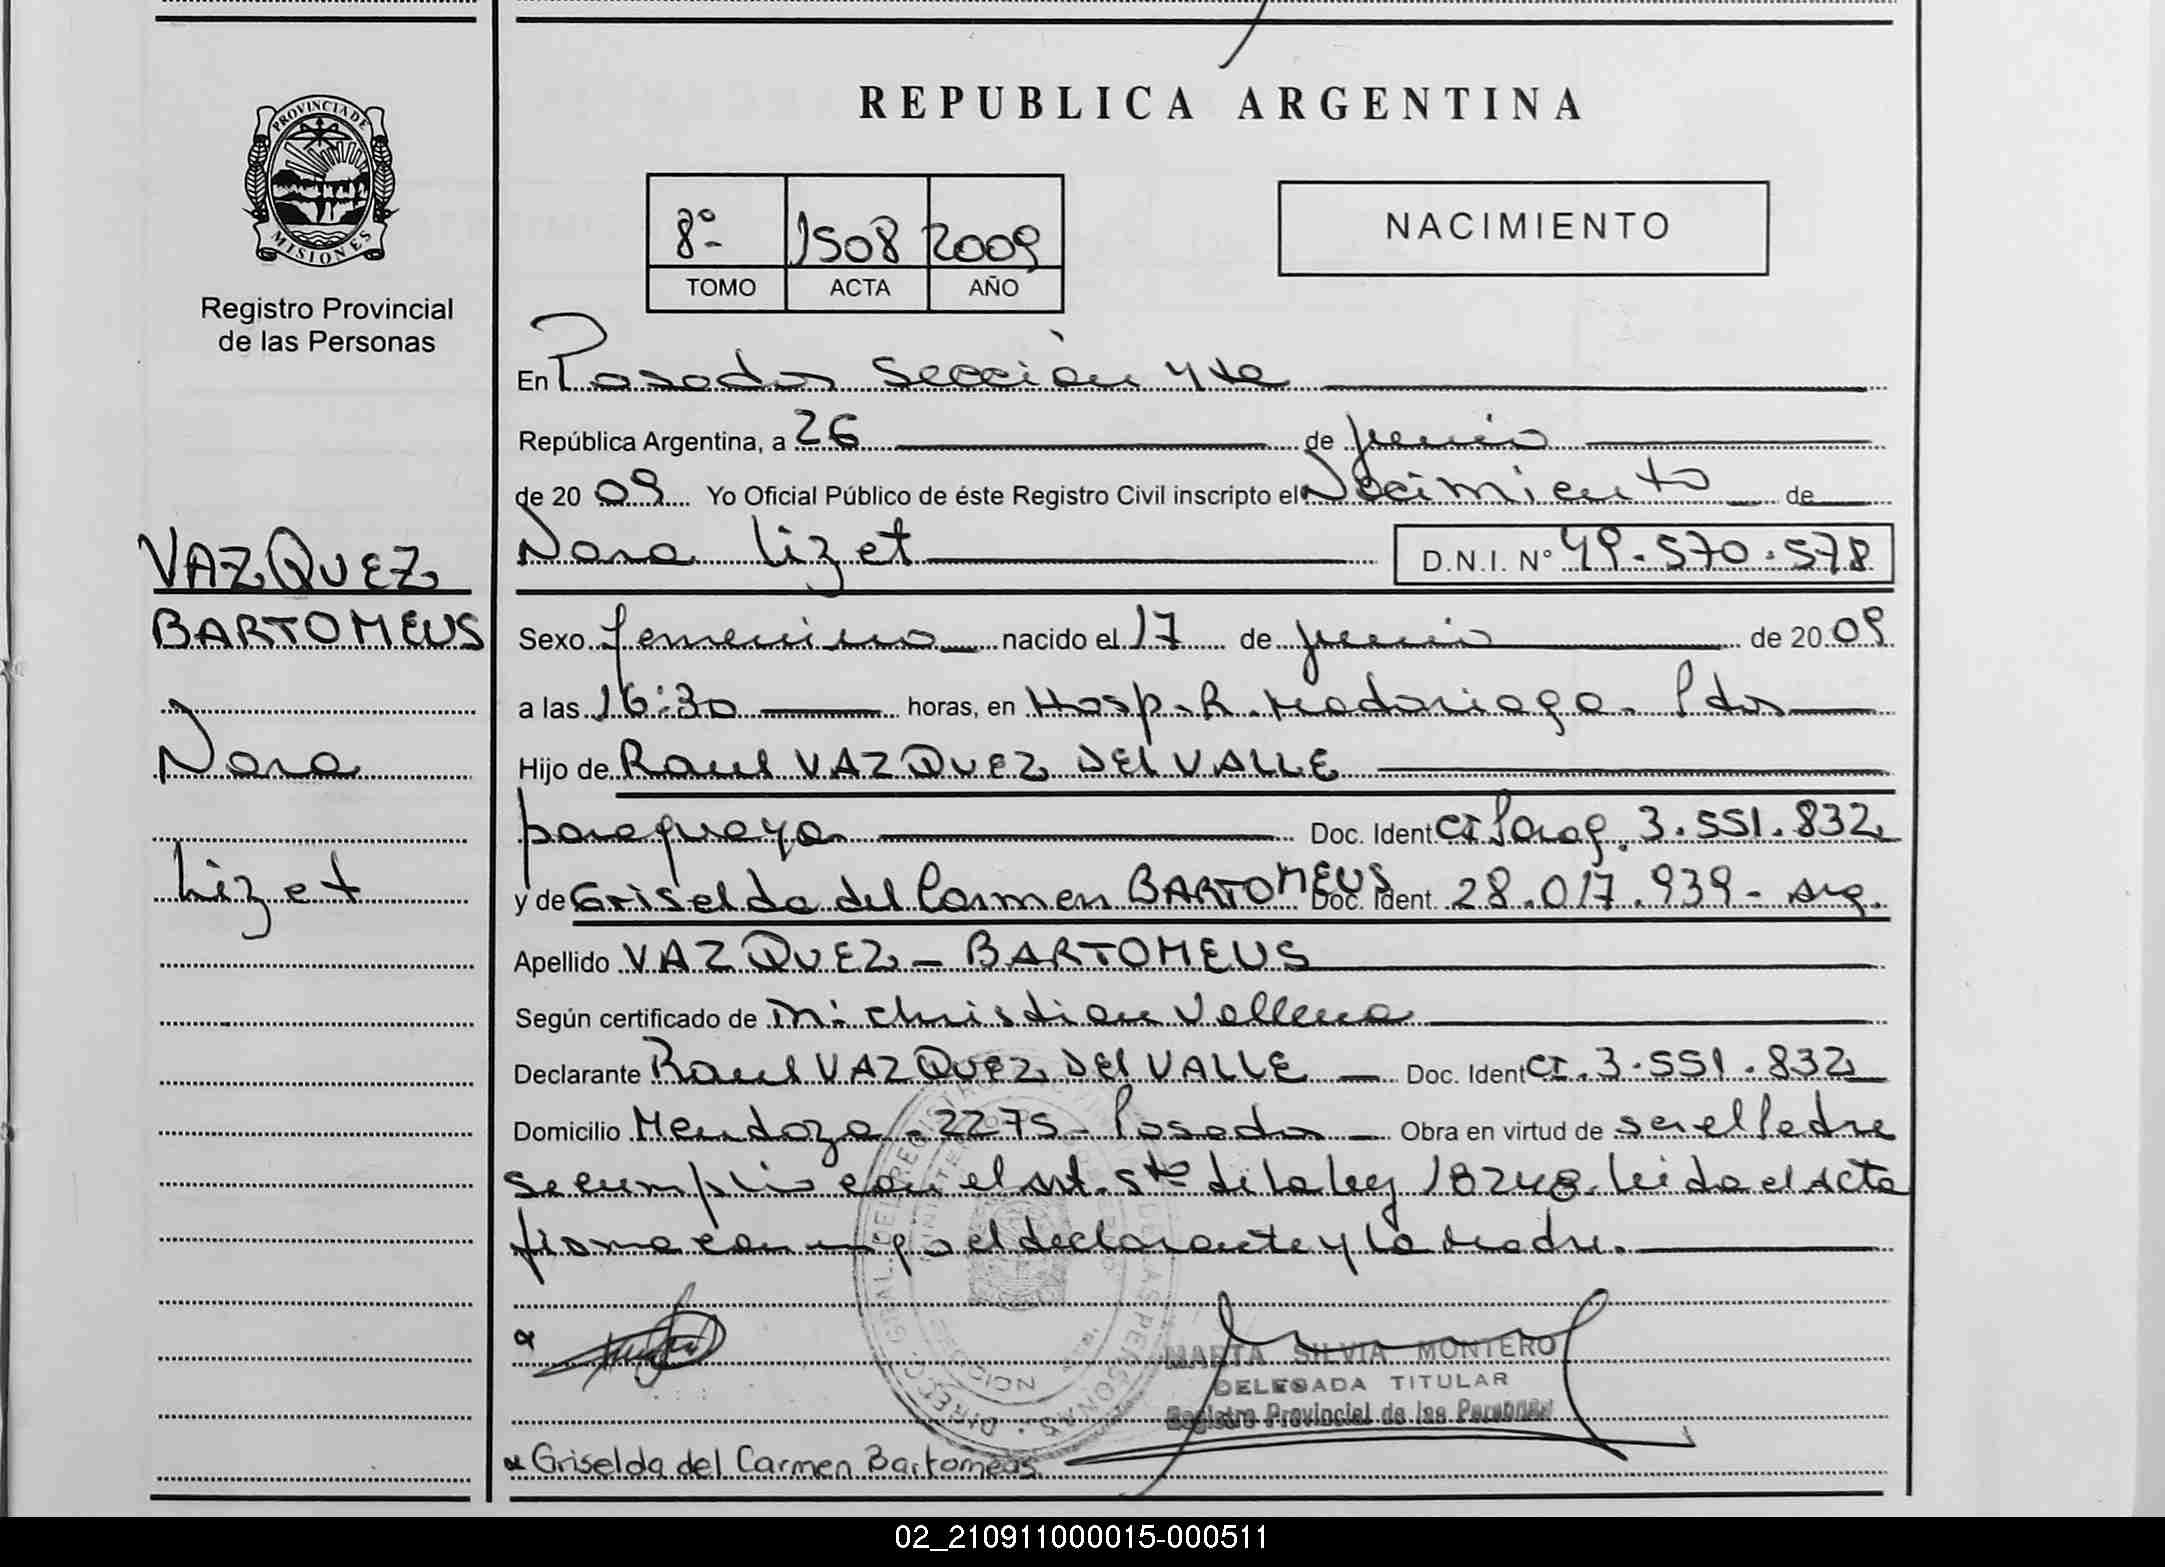 PROVINCIA DE
MISIONES
Registro Provincial
de las Personas
VAZQUEZ
BARTOMEUS
Nara
Lizet
REPUBLICA ARGENTINA
8º 1508 2009
TOMO ACTA AÑO
NACIMIENTO
En Posadas Sección 4ta
República Argentina, a 26 de junio
de 2009 Yo Oficial Público de éste Registro Civil inscripto el Nacimiento de
Nara Lizet D.N.I. Nº 49.570.578
Sexo femenino nacido el 17 de junio de 2009
a las 16:30 horas, en Hosp. R. Madariaga. Pdas
Hijo de Raul VAZQUEZ DEl VALLE
paraguaya Doc. Ident CI Parag. 3.551.832
y de Griselda del Carmen BARTOMEUS Doc. Ident. 28.017.939 - arg.
Apellido VAZQUEZ - BARTOMEUS
Según certificado de Christian Vallena
Declarante Raul VAZQUEZ DEl VALLE Doc. Ident CI. 3.551.832
Domicilio Mendoza. 2275 - Posadas Obra en virtud de ser el Padre
se cumplio con el art. 5to de la ley 18248. leida el acta
firma conmigo el declarante y la madre.
MARTA SILVIA MONTERO
DELEGADA TITULAR
Registro Provincial de las Personas
Griselda del Carmen Bartomeus
02_210911000015-000511